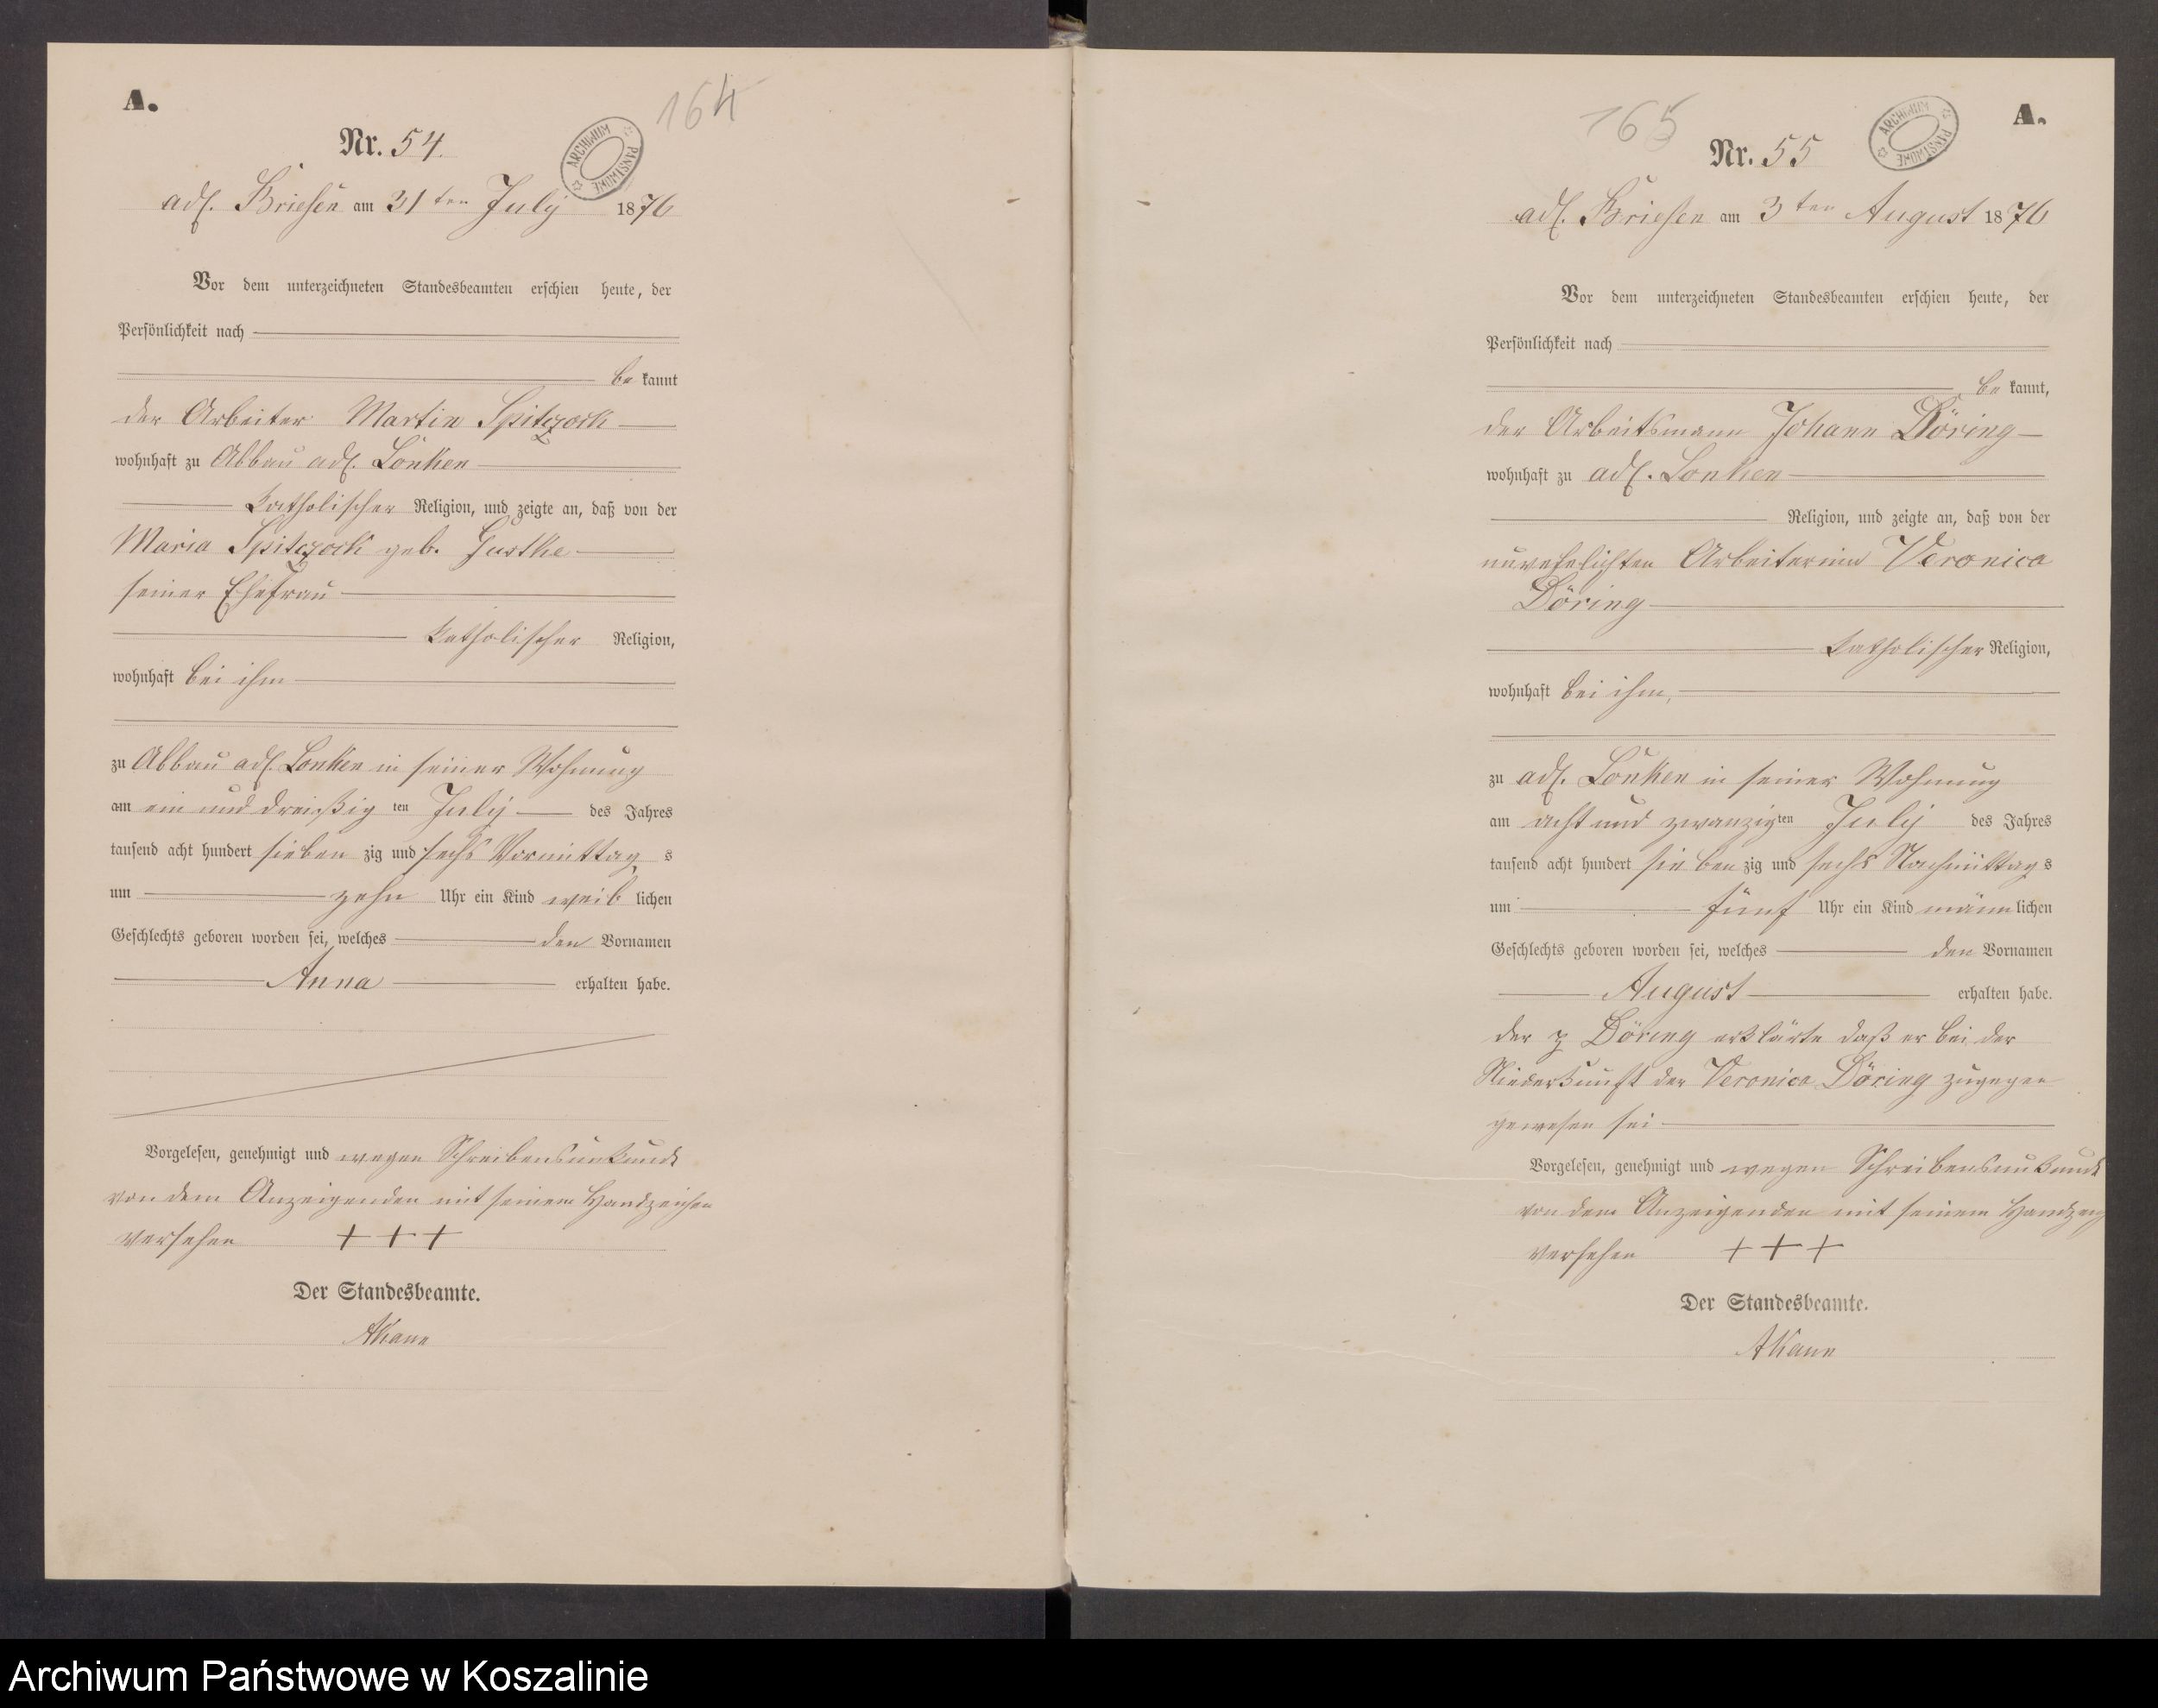 A.
164
Nr. 54.
ARCHIWUM PAŃSTWOWE
adl. Briesen am 31ten July 1876
Vor dem unterzeichneten Standesbeamten erschien heute, der
Persönlichkeit nach
be kannt
der Arbeiter Martin Spitczock
wohnhaft zu Abbau adl. Lonken
katholischer Religion, und zeigte an, daß von der
Maria Spitczock geb. Gustke
seiner Ehefrau
katholischer Religion,
wohnhaft bei ihm
zu Abbau adl. Lonken in seiner Wohnung
am ein und dreißig ten July des Jahres
tausend acht hundert sieben zig und sechs Vormittag s
um zehn Uhr ein Kind weib lichen
Geschlechts geboren worden sei, welches den Vornamen
Anna erhalten habe.
Vorgelesen, genehmigt und wegen Schreibensunkunde
von dem Anzeigenden mit seinem Handzeichen
versehen + + +
Der Standesbeamte.
AKann
A.
165
Nr. 55
ARCHIWUM PAŃSTWOWE
adl. Briesen am 3ten August 1876
Vor dem unterzeichneten Standesbeamten erschien heute, der
Persönlichkeit nach
be kannt,
der Arbeitsmann Johann Döring
wohnhaft zu adl. Lonken
Religion, und zeigte an, daß von der
unverehelichten Arbeiterinn Veronica
Döring
katholischer Religion,
wohnhaft bei ihm,
zu adl. Lonken in seiner Wohnung
am acht und zwanzig ten July des Jahres
tausend acht hundert sieben zig und sechs Nachmittag s
um fünf Uhr ein Kind männ lichen
Geschlechts geboren worden sei, welches den Vornamen
August erhalten habe.
der Döring erklärte daß er bei der
Niederkunft der Veronica Döring zugegen
gewesen sei
Vorgelesen, genehmigt und wegen Schreibensunkunde
von dem Anzeigenden mit seinem
versehen + + +
Der Standesbeamte.
AKann
Archiwum Państwowe w Koszalinie